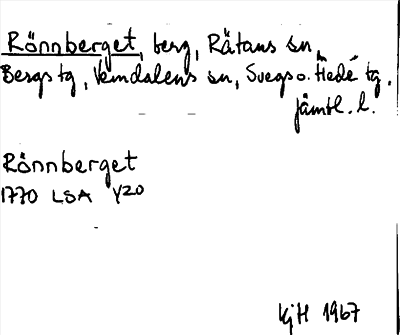 Rönnberget, berg, Rätans sn,
Bergs tg, Vemdalens sn, Svegs o. Hede tg,
jämtl. l.
Rönnberget
1770 LSA Y20
KjH 1967